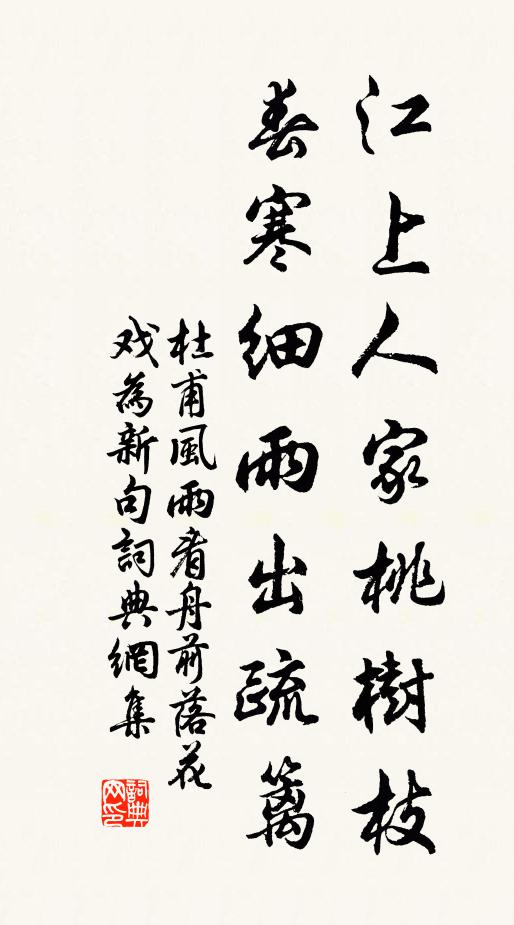 江上人家桃樹枝
春寒細雨出疏籬
杜甫風雨看舟前落花
戏為新句詞典網集
詞典网印